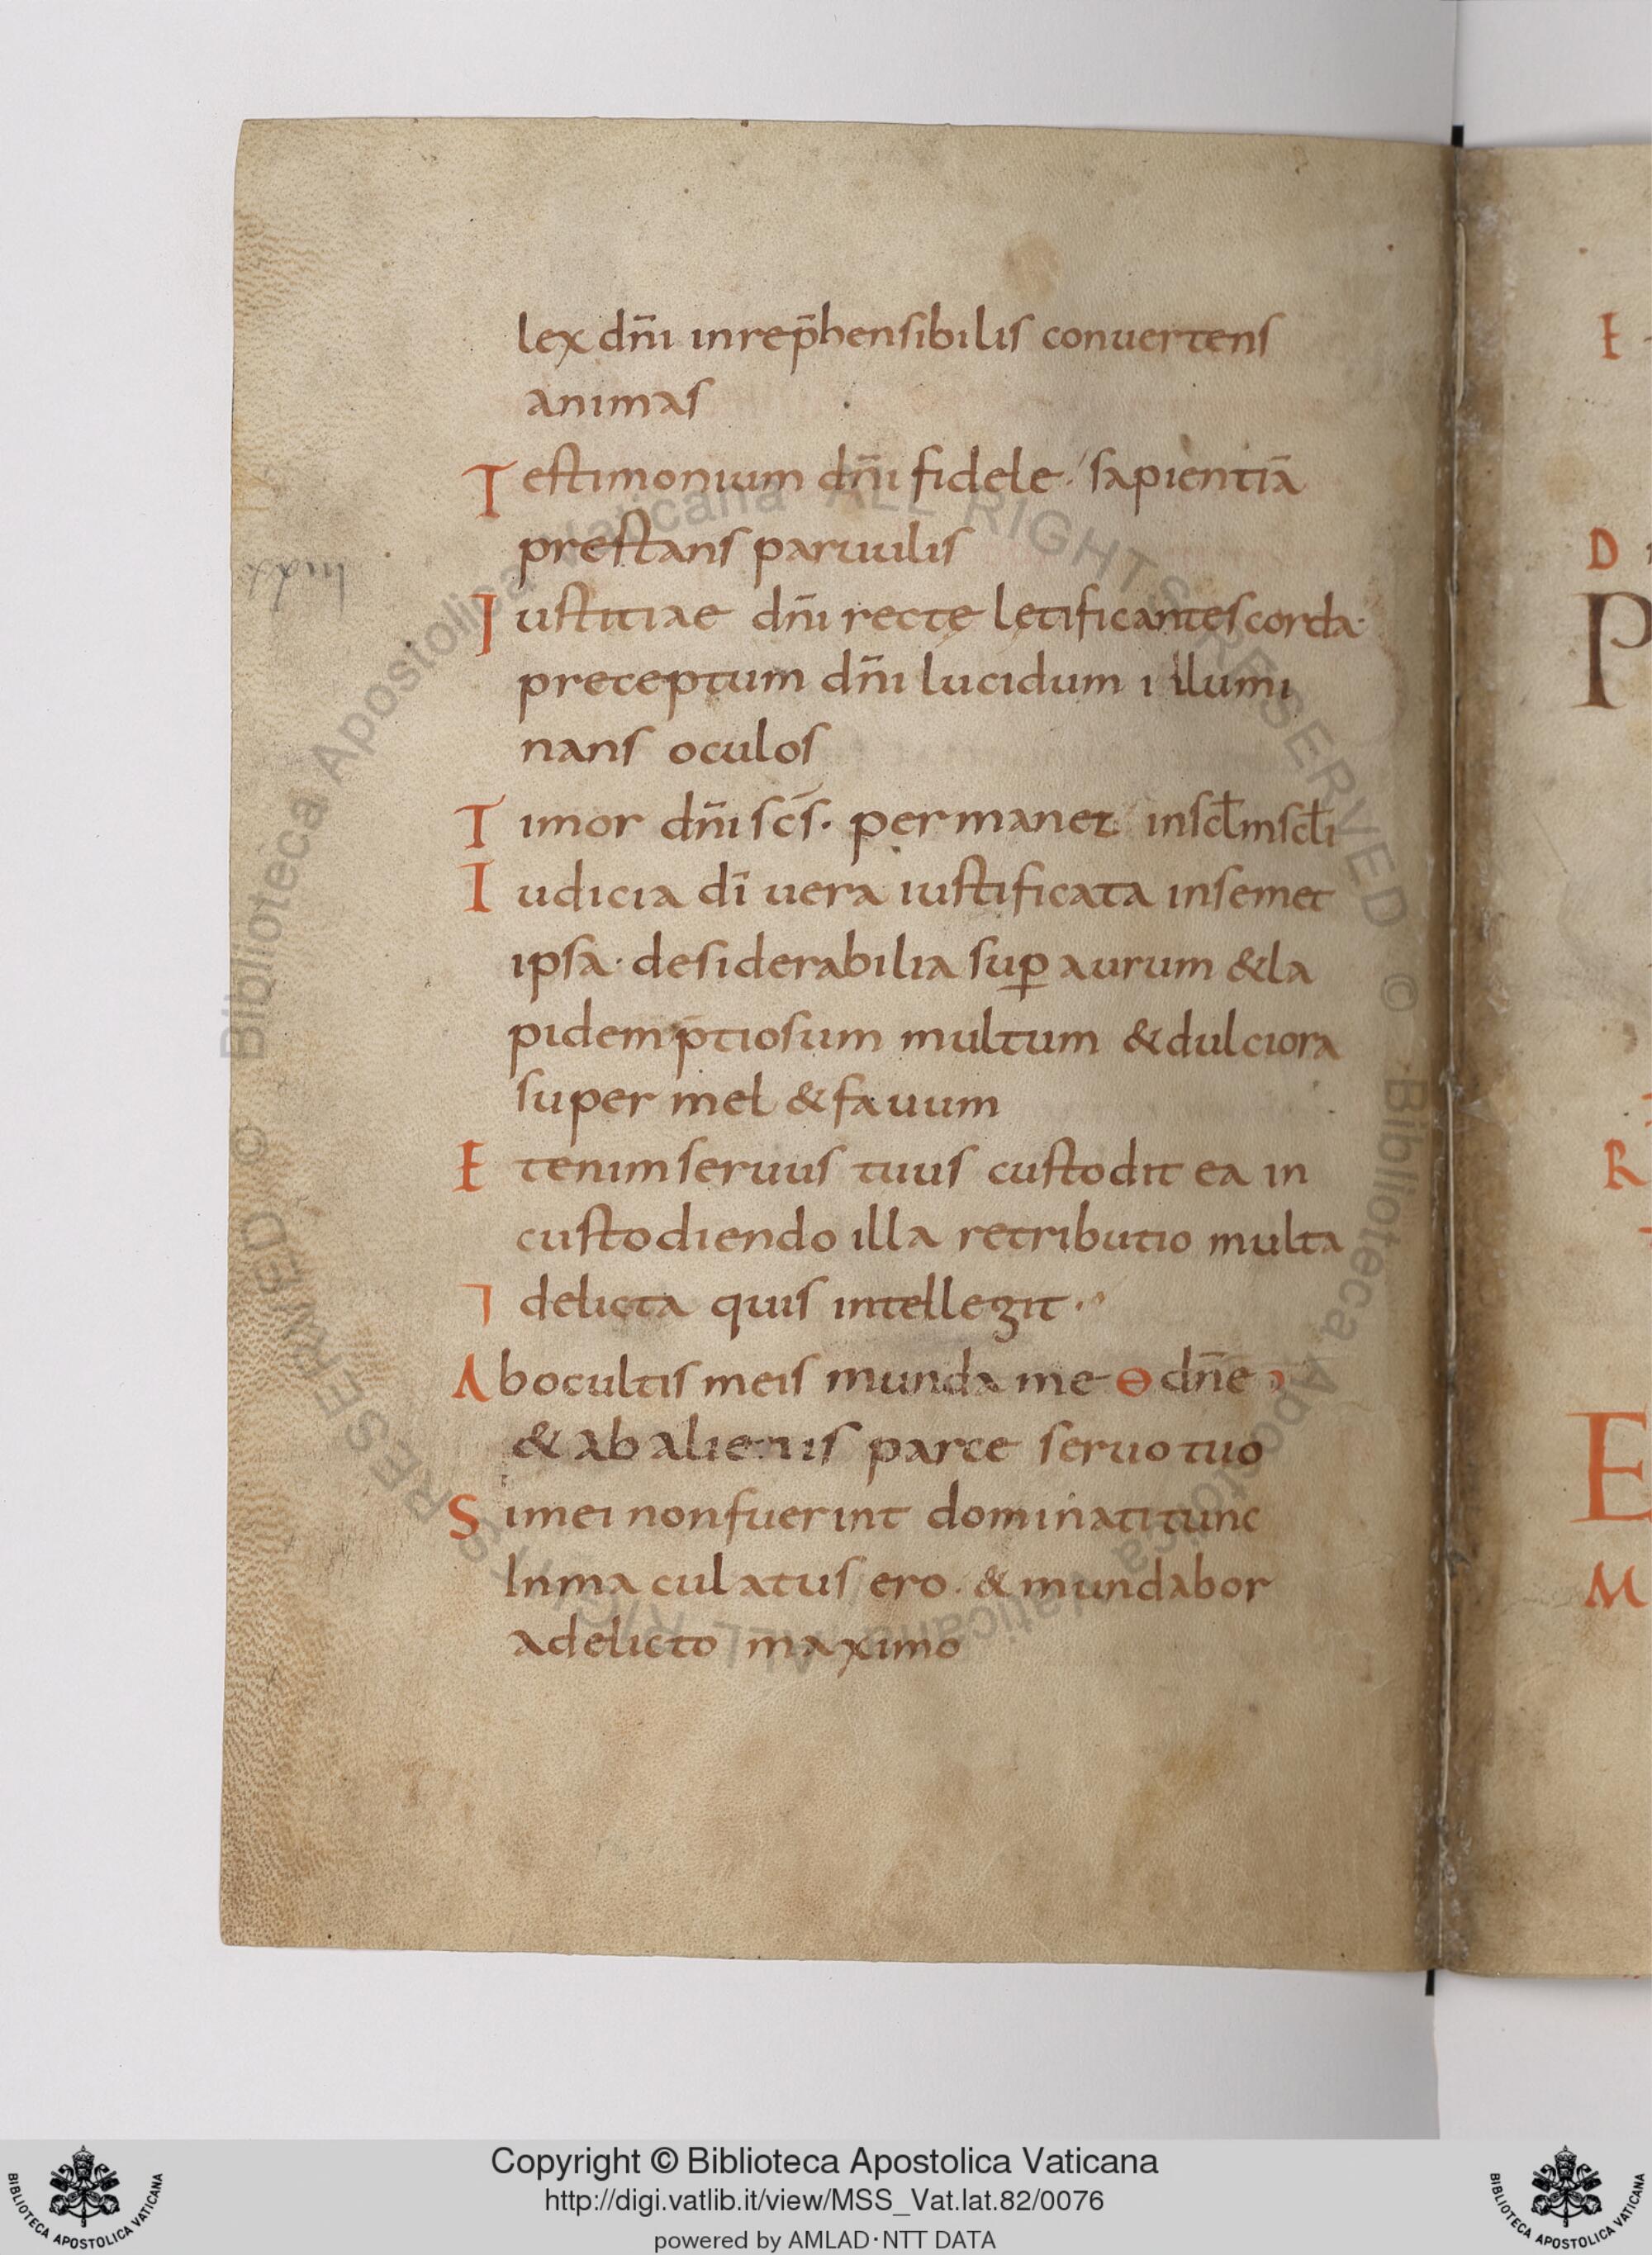 lex dn̄i inrep̄hensibilis conuertens
animas
Testimonium dn̄i fidele · sapientiā
prestans paruulis
Iustitiae dn̄i rectę lętificantes corda·
preceptum dn̄i lucidum i illumi
nans oculos
Timor dn̄i sc̄s· permanet insct̄m sct̄i
Iudicia dī uera iustificata insemet
ipsa· desiderabilia sup̱ aurum &la
pidem p̄tiosum multum &dulciora
super mel &fauum
Etenim seruus tuus custodit ea in
custodiendo illa retributio multa
I delicta quis intellegit·
Abocultis meis munda me o dn̄e
&ab alienis parce seruo tuo
Simei nonfuerint dominati tunc
Inmaculatus ero· &mundabor
adelicto maximo
E
D
P
R
E
M
© Biblioteca Apostolica Vaticana ALL RIGHTS RESERVED © Biblioteca Apostolica Vaticana ALL RIGHTS RESERVED
BIBLIOTECA APOSTOLICA VATICANA
Copyright © Biblioteca Apostolica Vaticana
http://digi.vatlib.it/view/MSS_Vat.lat.82/0076
powered by AMLAD·NTT DATA
BIBLIOTECA APOSTOLICA VATICANA